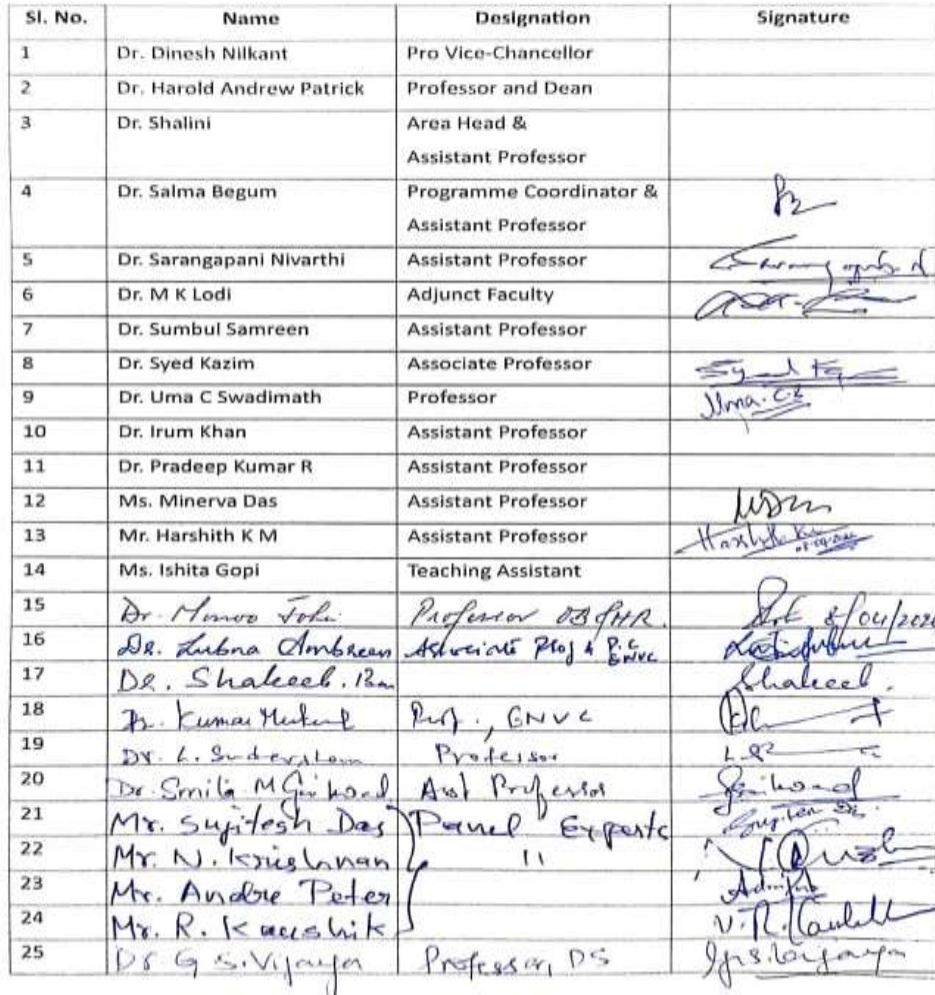 Sl. No. Name Designation Signature
1 Dr. Dinesh Nilkant Pro Vice-Chancellor
2 Dr. Harold Andrew Patrick Professor and Dean
3 Dr. Shalini Area Head &
Assistant Professor
4 Dr. Salma Begum Programme Coordinator &
Assistant Professor
5 Dr. Sarangapani Nivarthi Assistant Professor
6 Dr. M K Lodi Adjunct Faculty
7 Dr. Sumbul Samreen Assistant Professor
8 Dr. Syed Kazim Associate Professor Syed
9 Dr. Uma C Swadimath Professor Uma.C.S
10 Dr. Irum Khan Assistant Professor
11 Dr. Pradeep Kumar R Assistant Professor
12 Ms. Minerva Das Assistant Professor
13 Mr. Harshith K M Assistant Professor Harshith
14 Ms. Ishita Gopi Teaching Assistant
15 Dr. Professor OB & HR
16 Dr. Lubna Ambreen Associate Prof &
17 Dr. Shakeeb. Shakeeb.
18 Dr. Kumar Prof., GNVC
19 Dr. L. Professor
20 Dr. Smita M Gaikwad Asst Professor Gaikwad
21 Mr. Sujitesh Das Panel Experts
22 Mr. N. Krishnan 11
23 Mr. Andre Peter
24 Mr. R. Kaushik
25 Dr G S. Vijaya Professor, DS